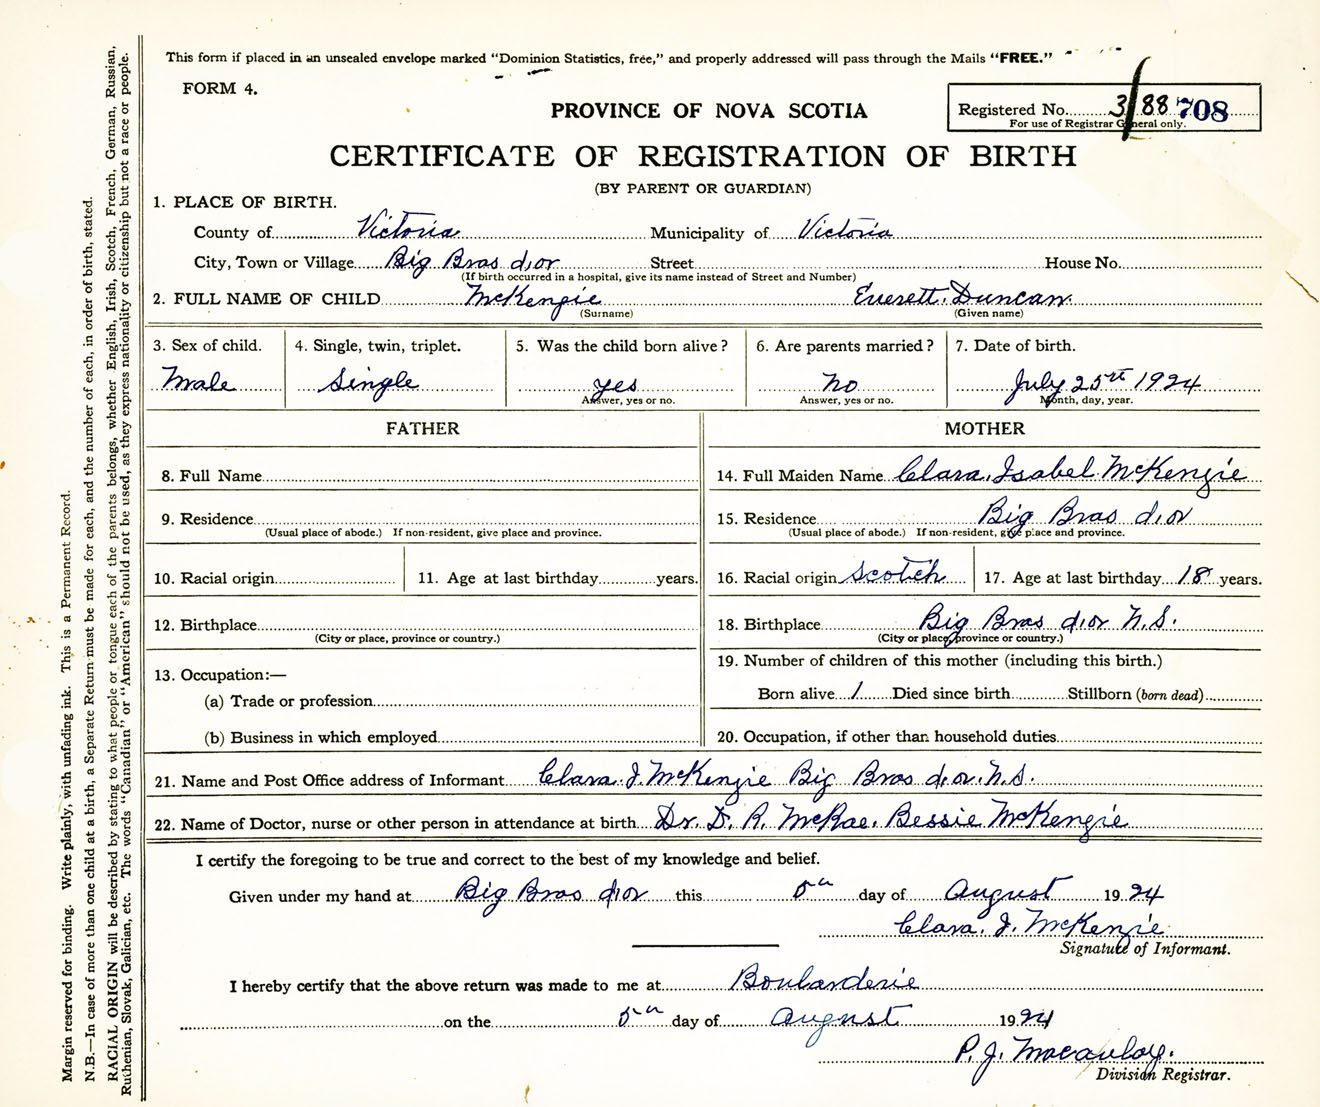 This form if placed in an unsealed envelope marked “Dominion Statistics, free,” and properly addressed will pass through the Mails “FREE.”
FORM 4.
PROVINCE OF NOVA SCOTIA
Registered No. 3/88 708
For use of Registrar General only.
CERTIFICATE OF REGISTRATION OF BIRTH
(BY PARENT OR GUARDIAN)
1. PLACE OF BIRTH.
County of Victoria Municipality of Victoria
City, Town or Village Big Bras d'or Street House No.
(If birth occurred in a hospital, give its name instead of Street and Number)
2. FULL NAME OF CHILD McKenzie Everett Duncan
(Surname) (Given name)
3. Sex of child. 4. Single, twin, triplet. 5. Was the child born alive? 6. Are parents married? 7. Date of birth.
Male Single yes no July 25th 1924
Answer, yes or no. Answer, yes or no. Month, day, year.
FATHER MOTHER
8. Full Name 14. Full Maiden Name Clara Isabel McKenzie
9. Residence 15. Residence Big Bras d'or
(Usual place of abode.) If non-resident, give place and province. (Usual place of abode.) If non-resident, give place and province.
10. Racial origin 11. Age at last birthday years. 16. Racial origin Scotch 17. Age at last birthday 18 years.
12. Birthplace 18. Birthplace Big Bras d'or N.S.
(City or place, province or country.) (City or place, province or country.)
19. Number of children of this mother (including this birth.)
13. Occupation:—
Born alive 1 Died since birth Stillborn (born dead)
(a) Trade or profession
(b) Business in which employed 20. Occupation, if other than household duties
21. Name and Post Office address of Informant Clara I. McKenzie Big Bras d'or N.S.
22. Name of Doctor, nurse or other person in attendance at birth Dr. D. R. McRae. Bessie McKenzie
I certify the foregoing to be true and correct to the best of my knowledge and belief.
Given under my hand at Big Bras d'or this 5th day of August 1924
Clara. I. McKenzie
Signature of Informant.
I hereby certify that the above return was made to me at Boularderie
on the 5th day of August 1924
P. J. Macaulay.
Division Registrar.
Margin reserved for binding. Write plainly, with unfading ink. This is a Permanent Record.
N.B.—In case of more than one child at a birth, a Separate Return must be made for each, and the number of each, in order of birth, stated.
RACIAL ORIGIN will be described by stating to what people or tongue each of the parents belongs, whether English, Irish, Scotch, French, German, Russian,
Ruthenian, Slovak, Galician, etc. The words “Canadian” or “American” should not be used, as they express nationality or citizenship but not a race or people.